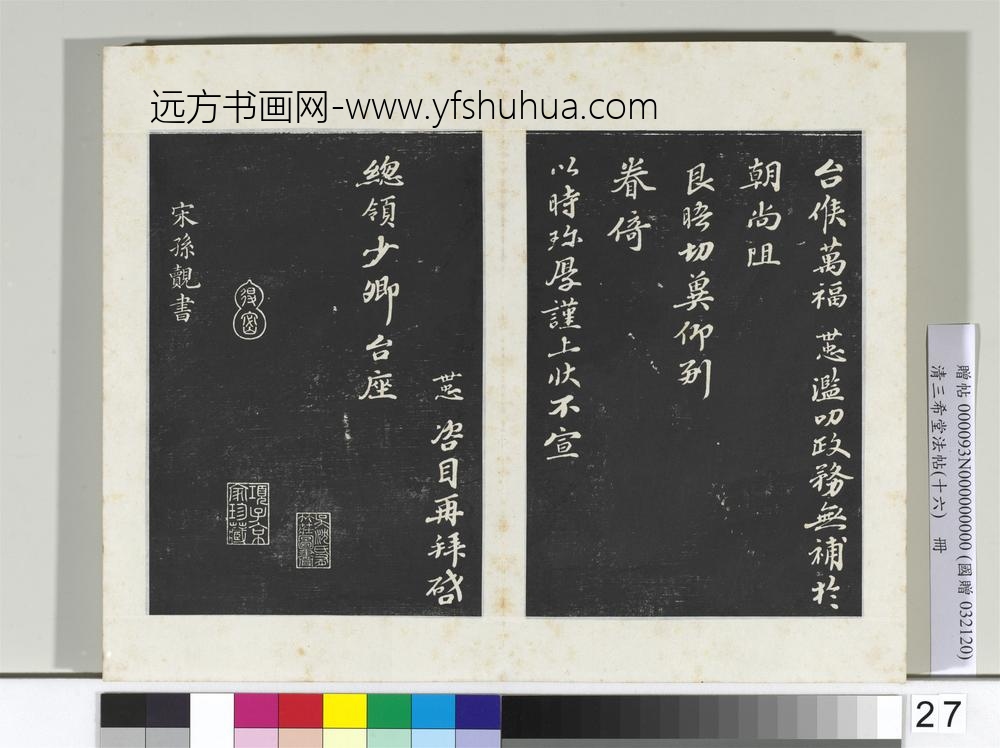 远方书画网-www.yfshuhua.com
台候萬福 懃濫叨政務無補於
朝尚阻
良晤切冀仰副
眷倚
以時珎厚謹上狀不宣
懃 咨目再拜啓
總領少卿台座
宋孫覿書
項子京
家珍藏
贈帖 000093N000000000 (國贈 032120)
清三希堂法帖(十六) 冊
27